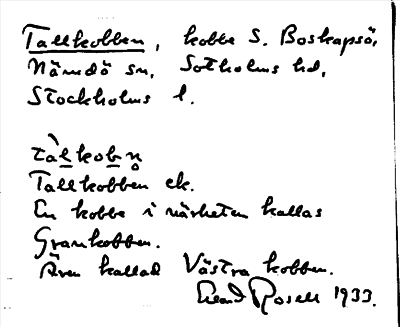 Tallkobben, kobbe S. Boskapsö,
Nämdö sn, Sotholms hd,
Stockholms l.
tàlkobn̥
Tallkobben ek.
En kobbe i närheten kallas
Grankobben.
Även kallad Västra kobben.
Rosell 1933.